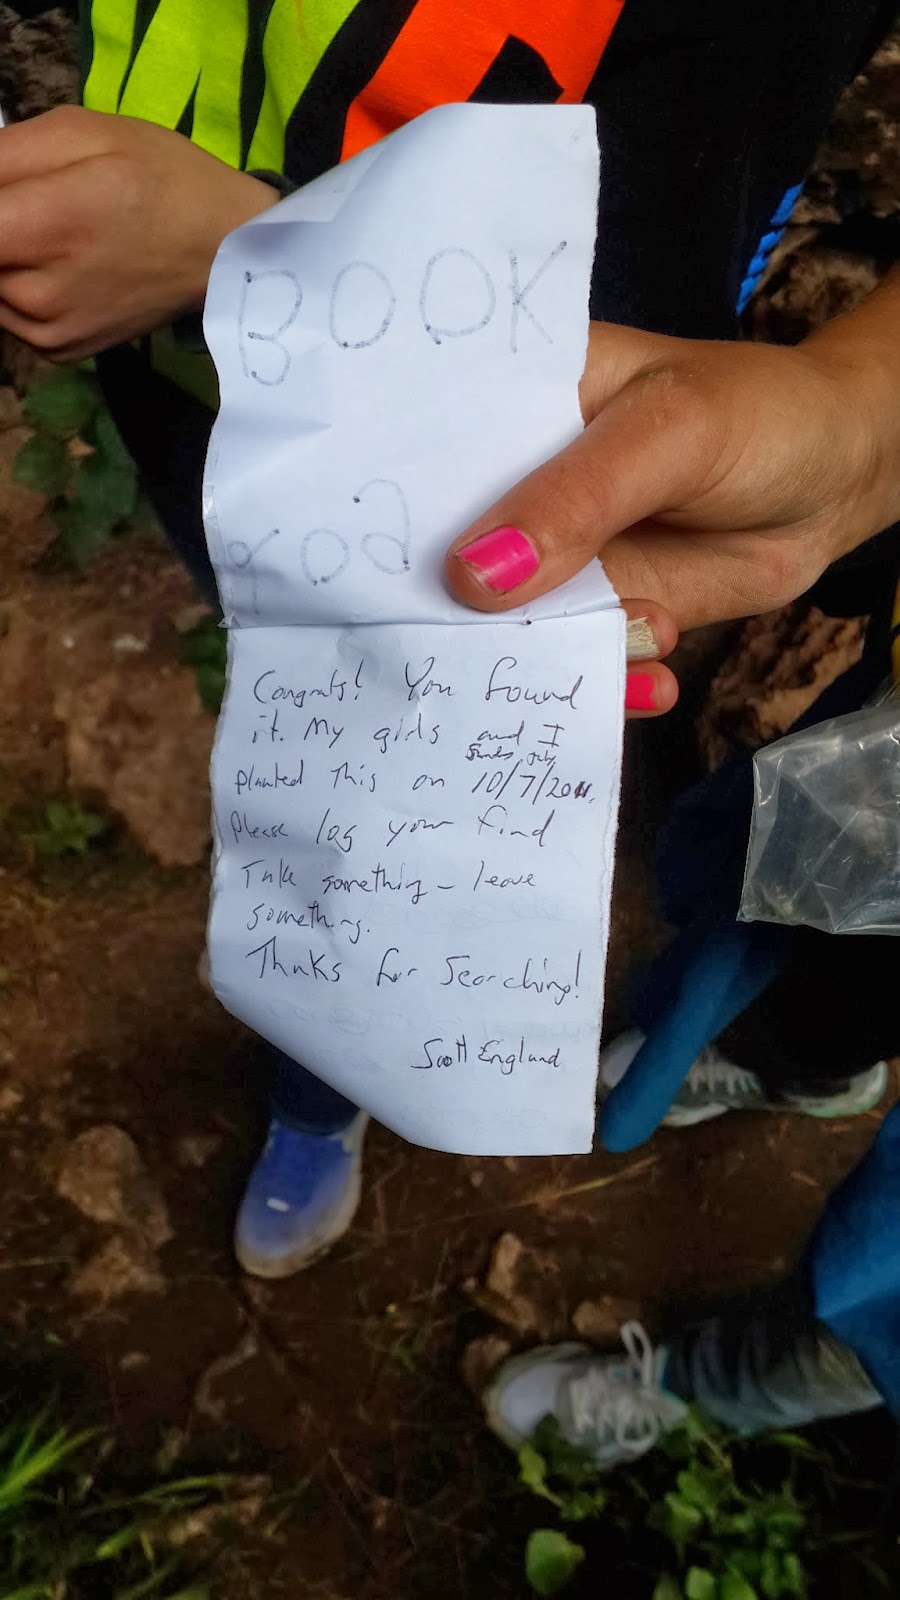 BOOK
Congrats! You found
it. My girls and I
planted this on 10/7/2011.
Please log your find
Take something - leave
something.
Thnks for searching!
Scott England